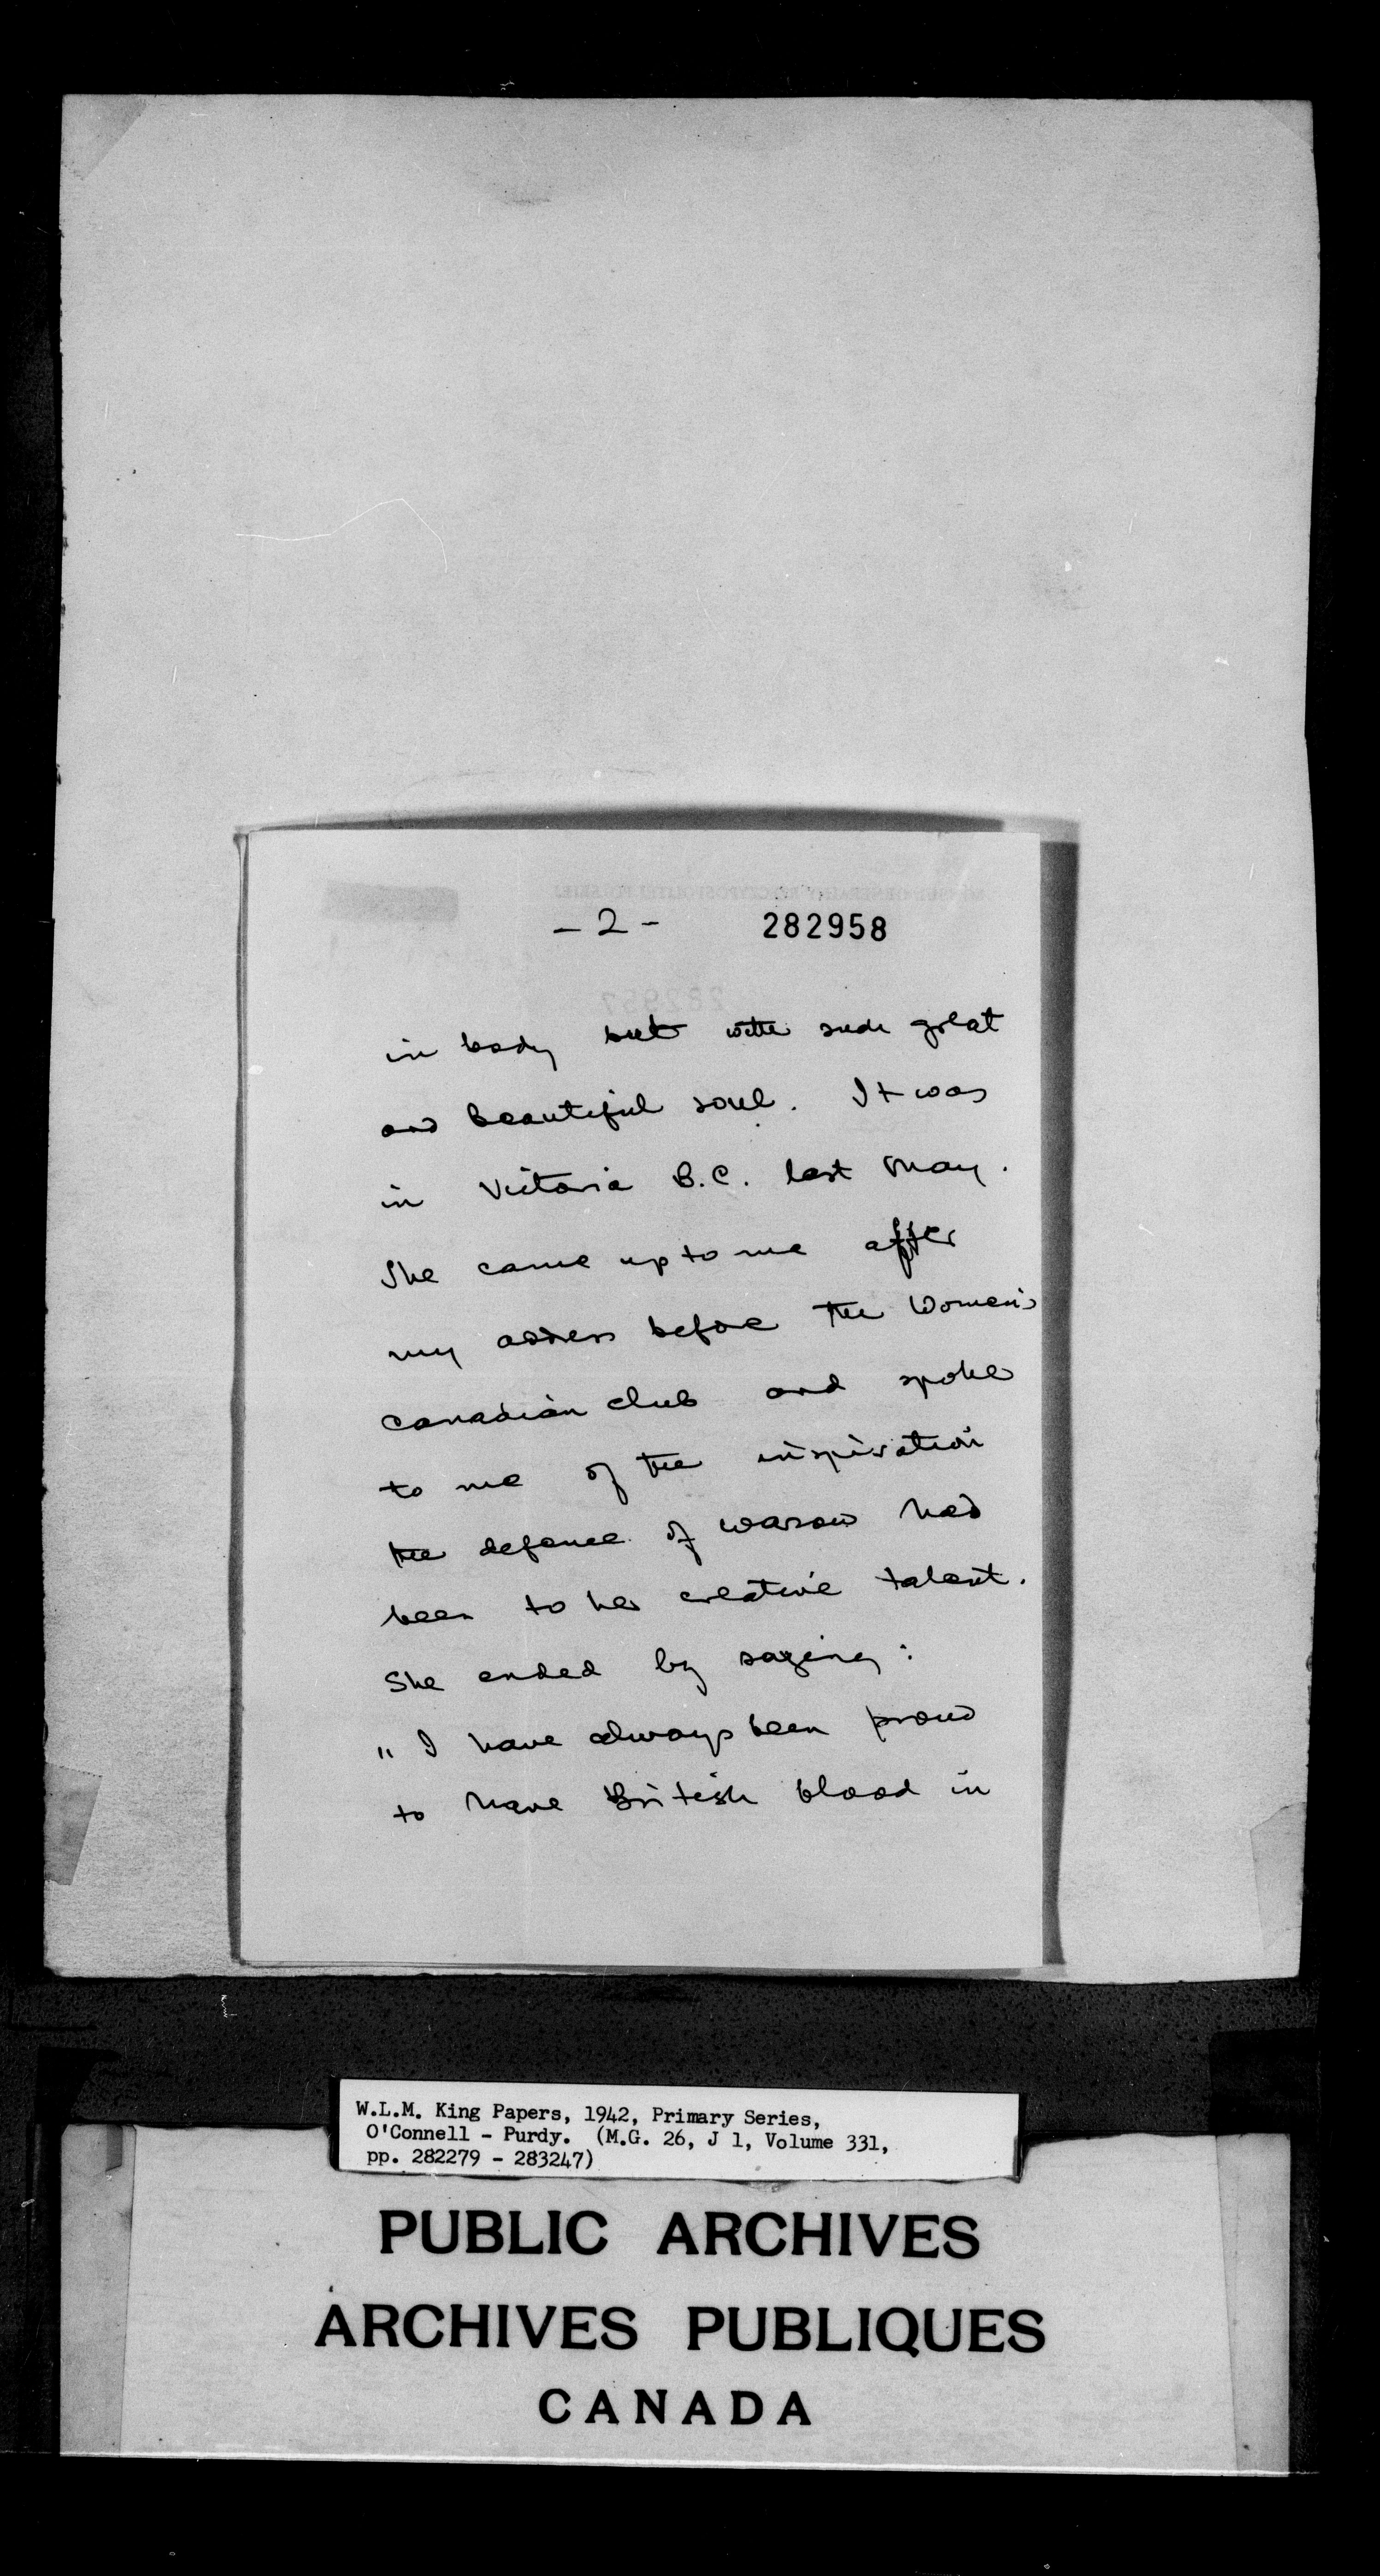 - 2 - 282958
in body but with such great
and beautiful soul. It was
in Victoria B.C. last May.
She came up to me after
my address before the Women's
Canadian Club and spoke
to me of the inspiration
the defence of Warsaw had
been to her creative talent.
She ended by saying:
" I have always been proud
to have British blood in
W.L.M. King Papers, 1942, Primary Series,
O'Connell - Purdy. (M.G. 26, J 1, Volume 331,
pp. 282279 - 283247)
PUBLIC ARCHIVES
ARCHIVES PUBLIQUES
CANADA